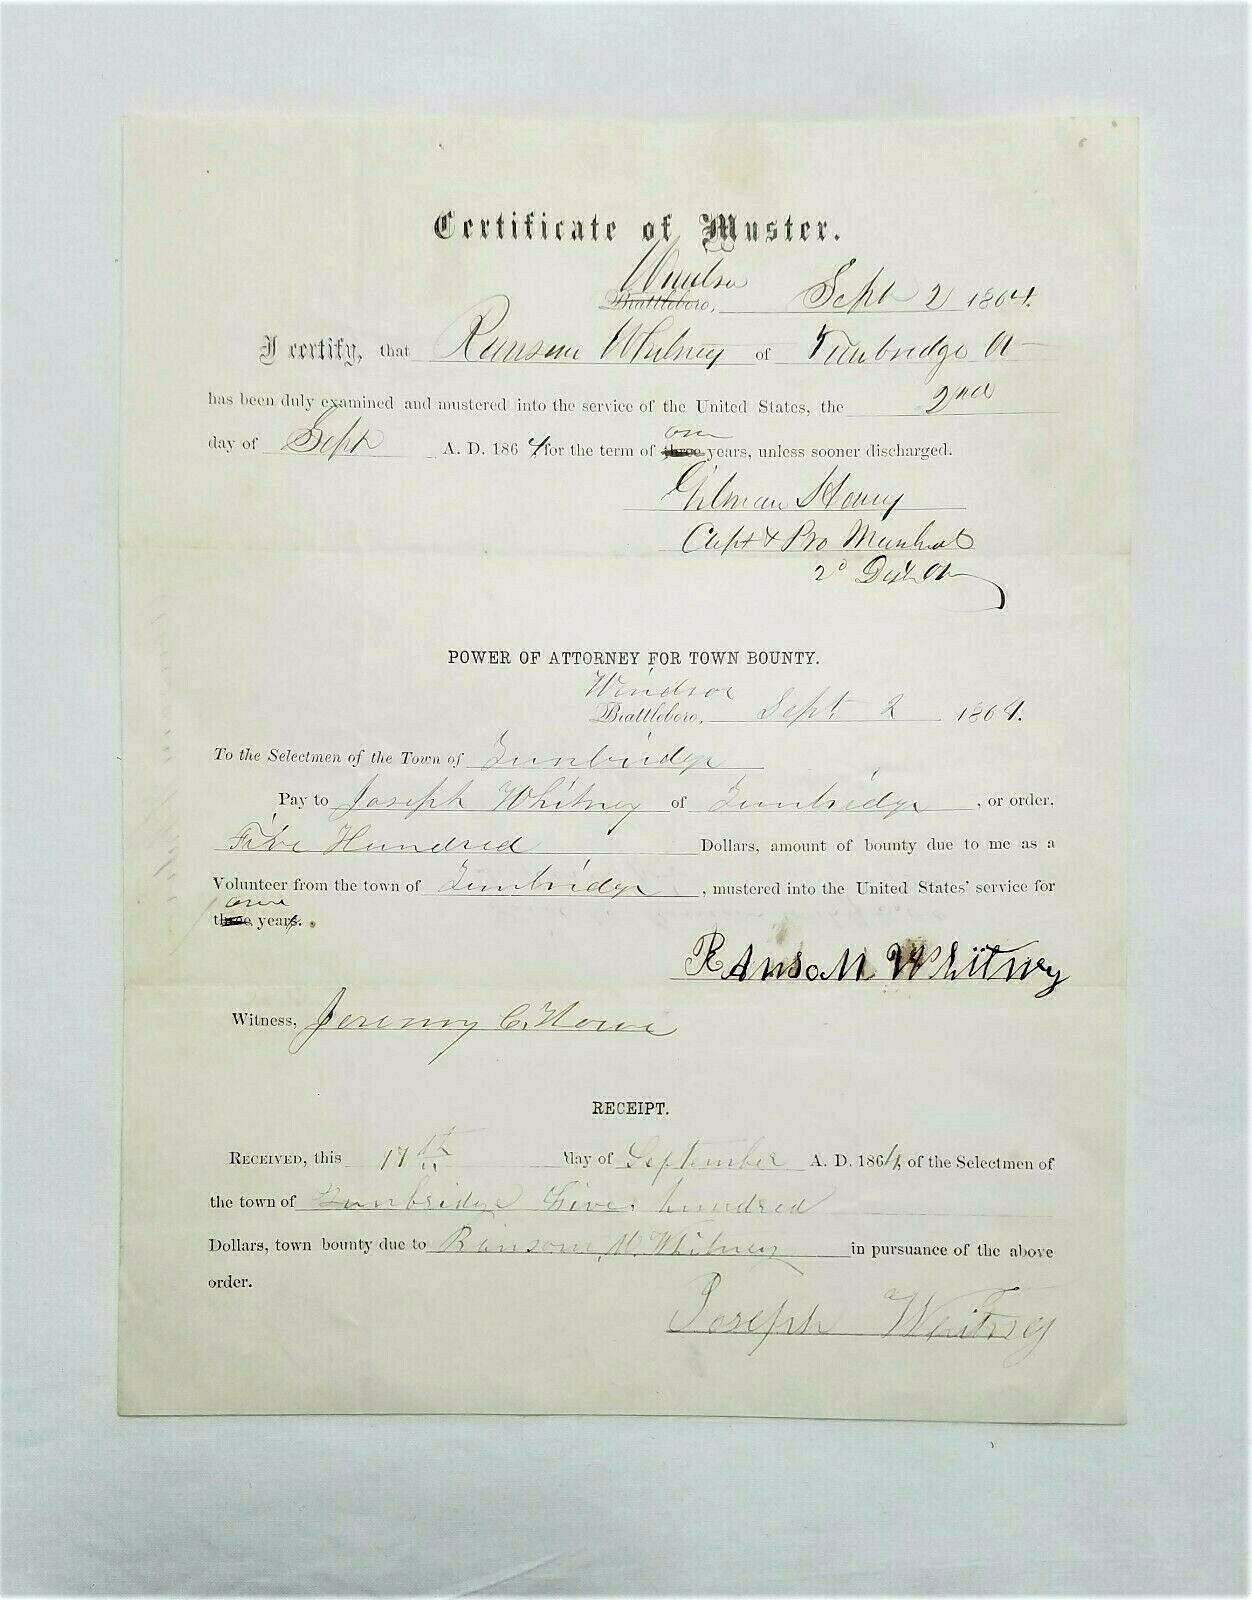 Certificate of Muster.
Windsor
Brattleboro, Sept 2 1864.
I certify, that Ransom Whitney of Tunbridge Vt
has been duly examined and mustered into the service of the United States, the 2nd
day of Sept A. D. 1864, for the term of three one years, unless sooner discharged.
Gilman Henry
Capt & Pro Marshal
2d Dist Vt
POWER OF ATTORNEY FOR TOWN BOUNTY.
Windsor
Brattleboro, Sept. 2 1864.
To the Selectmen of the Town of Tunbridge
Pay to Joseph Whitney of Tunbridge, or order,
Five Hundred Dollars, amount of bounty due to me as a
Volunteer from the town of Tunbridge, mustered into the United States' service for
one
three years.
RANsoM WHitNey
Witness, Jeremy C. Howe
RECEIPT.
RECEIVED, this 17th day of September A. D. 1864, of the Selectmen of
the town of Tunbridge Five hundred
Dollars, town bounty due to Ransom M. Whitney in pursuance of the above
order.
Joseph Whitney